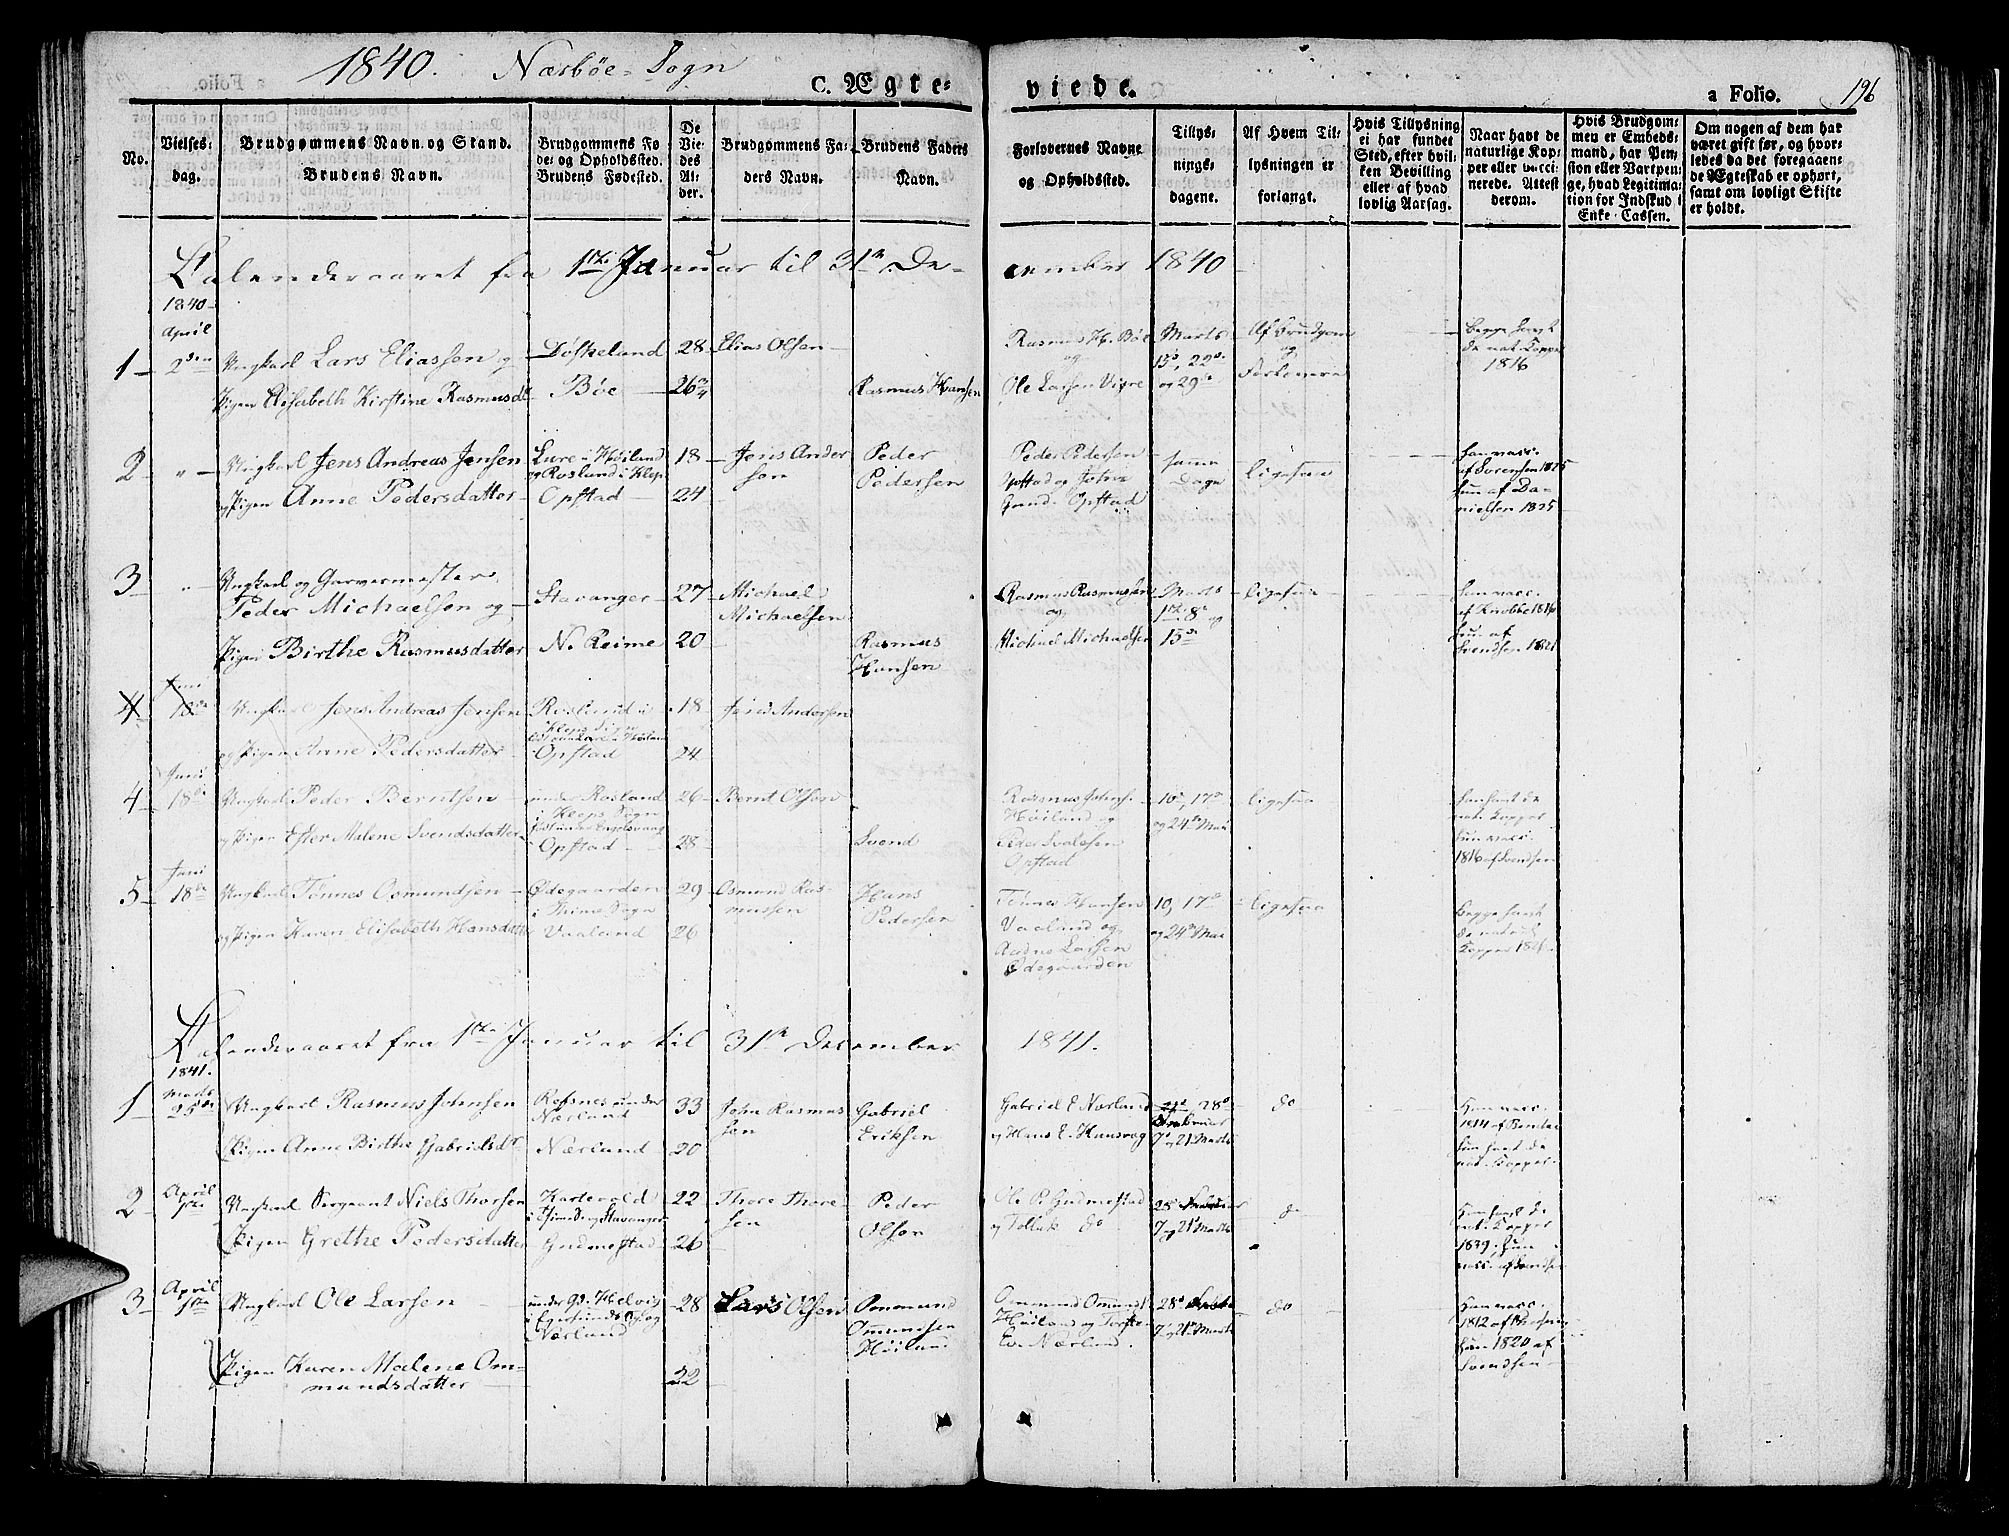 1840. Nærbøe Sogn
C. Ægte-
viede.
a Folio.
196
No.
Vielses-
dag.
Brudgommens Navn og Stand.
Brudens Navn.
Brudgommens Fø-
de- og Opholdssted.
Brudens Fødested.
De
Vie-
des
Al-
der.
Brudgommens Fa-
ders Navn.
Brudens Faders
Navn.
Forlovernes Navne
og Opholdssted.
Tillys-
nings-
dagene.
Af Hvem Til-
lysningen er
forlangt.
Hvis Tillysning
ei har fundet
Sted, efter hvil-
ken Bevilling
eller af hvad
lovlig Aarsag.
Naar havt de
naturlige Kop-
per eller vacci-
nerede. Attest
derom.
Hvis Brudgom-
men er Embeds-
mand, har Pen-
sion eller Vartpen-
ge, hvad Legitima-
tion for Indskud i
Enke-Cassen.
Om nogen af dem har
været gift før, og hvor-
ledes da det foregaaen-
de Ægteskab er ophørt,
samt om lovligt Skifte
er holdt.
Calenderaaret fra 1ste Januar til 31te De-
cember 1840
1840
April
1 2den Ungkarl Lars Eliassen og Doskeland 28 Elias Olsen
Pigen Elisabeth Kirstine Rasmusdt Bøe 26 3/4 Rasmus Hansen
Rasmus H. Bøe
og
Ole Larsen Vigre
Marts
15d, 22d
og 29de
Af Brudgom
og
Forlovere
Begge havt
de nat. Kopper
1816
2 " Ungkarl Jens Andreas Jensen
og Pigen Anne Pedersdatter
Lure i Høiland
og Roslund i Klep
Opstad
18
24
Jens Ander
sen
Peder
Pedersen
Peder Pedersen
Opstad og John
Gund. Opstad
samme
Dage
ligesaa
han vacc.
af Sorensen 1825
hun af Da-
nielsen 1825
3 " Ungkarl og Garvermester
Peder Michaelsen og
Pigen Birthe Rasmusdatter
Stavanger
N. Reime
27
20
Michael
Michaelsen
Rasmus
Hansen
Rasmus Rasmussen
og
Michael Michaelsen
Marts
1ste 8de og
15de
ligesaa
han vacc.
af Knobbe 1816
hun af
Svendsen 1821
Juni
4 18de Ungkarl Jens Andreas Jensen
og Pigen Anne Pedersdatter
Roslund i
Kleps Sogn
Opstad
18
24
Jens Andersen
Juni
4 18de Ungkarl Peder Berntsen
og Pigen Ester Malene Svendsdatter
under Rosland
i Kleps Sogn
Opstad
26
28
Bernt Olsen
Svend
Rasmus Johns.
Høiland og
Peder Svalesen
Opstad
10d, 17d
og 24de Mai
ligesaa
han havt de
nat. Kopper
hun vacc.
1816 af Svendsen
Juni
5 18de Ungkarl Tønnes Osmundsen
og Pigen Karen Elisabeth Hansdatter
Ødegaarden
i Thime Sogn
Vaaland
29
26
Osmund Ras-
mussen
Hans
Pedersen
Tønnes Hansen
Vaaland og
Aadne Larsen
Ødegaarden
10, 17d
og 24de Mai
ligesaa
Begge havt
de naturl.
Kopper 1821.
Calenderaaret fra 1ste Januar til 31te December 1841.
1841.
Marts
1 25de Ungkarl Rasmus Johnsen
Pigen Anne Birthe Gabrielsdt
Refsnes under
Nærland
Nærland
33
20
John Rasmus
sen
Gabriel
Eriksen
Gabriel E. Nærland
og Hans E. Hunsvag
28d
Februar
7d og 21 Marts
do
Han vacc.
1814 af
hun havt de
nat. Kopper.
April
2 1ste Ungkarl Sergeant Niels Thorsen
Pigen Grethe Pedersdatter
Kartevold
i Thime S. og Stavanger
Gudmestad
22
26
Thore Thore-
sen
Peder
Olsen
Ole P. Gudmestad
og Tollak do
28 Februar
7 og 21 Marts
do
Han havt de
nat. Kopper
1839, hun
vacc. af Svendsen
April
3 1ste Ungkarl Ole Larsen
Pigen Karen Malene Om-
mundsdatter
under Gd. Helvig
i Egersunds S. og
Nærland
28
22
Lars Olsen
Ommund
Ommundsen
Høiland
Ommund Ommunds.
Høiland og Torste
Ev. Nærland.
28d Febr.
7 og 21de Marts
do
Han vacc.
1812 af
hun 1820 af
Svendsen